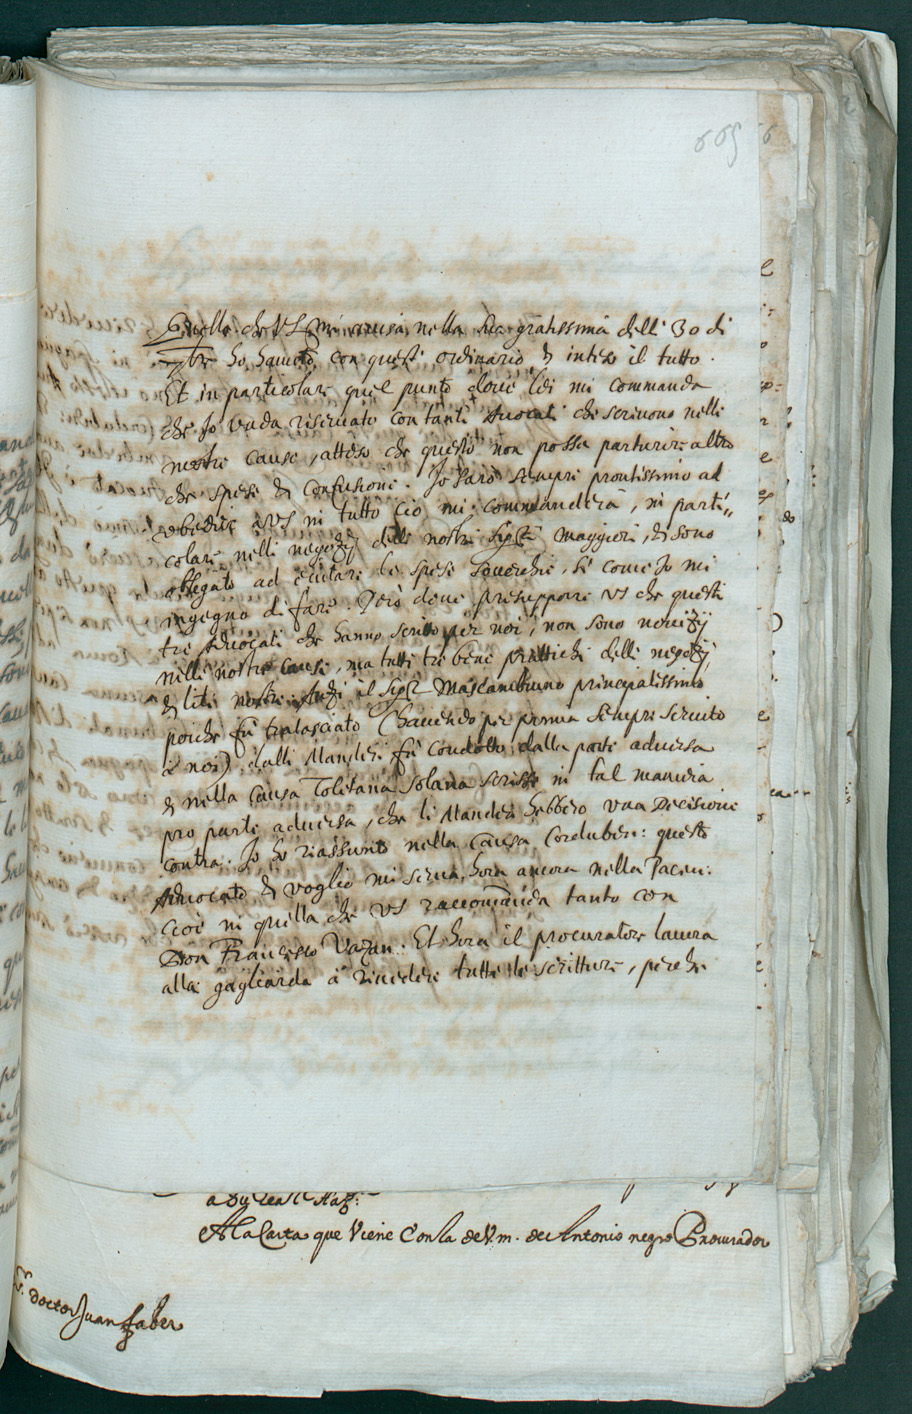 665
Quello che VS mi avisa nella sua gratissima delli 30 di
7bre ho havuto con questo ordinario et inteso il tutto.
Et in particolare quel punto dove lei mi commanda
che Io vada riservato con tanti Avocati che scrivono nelle
nostre cause, atteso che questo non possa parturire altro
che spese et confusione. Io sarò sempre prontissimo ad
obedire a VS in tutto ciò mi commanderà, in parti,,
colare nelli negozij delli nostri Sigri Maggiori, et sono
obligato ad evitare le spese soverchie, si come Io mi
ingegno di fare. Però deve presupporre VS che questi
tre Advocati che hanno scritto per noi, non sono novizij
nelle nostre cause, ma tutti tre bene prattichi delli negotij,
et liti nostre. Anzi il Sigr Mascambruno principalissimo
poiche fù tralasciato (havendo per prima sempre servito
à noi) dalli Mandesi fù condotto dalla parte adversa
et nella causa Toletana Solana scrisse in tal maniera
pro parte adversa, che li Mandesi hebbero una Decisione
contra. Io ho riassunto nella causa Corduben: questo
Advocato et voglio mi serva hora ancora nella Pacen:
cioè in quella che VS raccomanda tanto con
Don Francesco Vazan. Et hora il procuratore lavora
alla gagliarda à rivedere tutte le scritture, perche
A la Carta que Viene Con la de V.m. de Antonio negro Procurador
Sr. doctor Juan faber